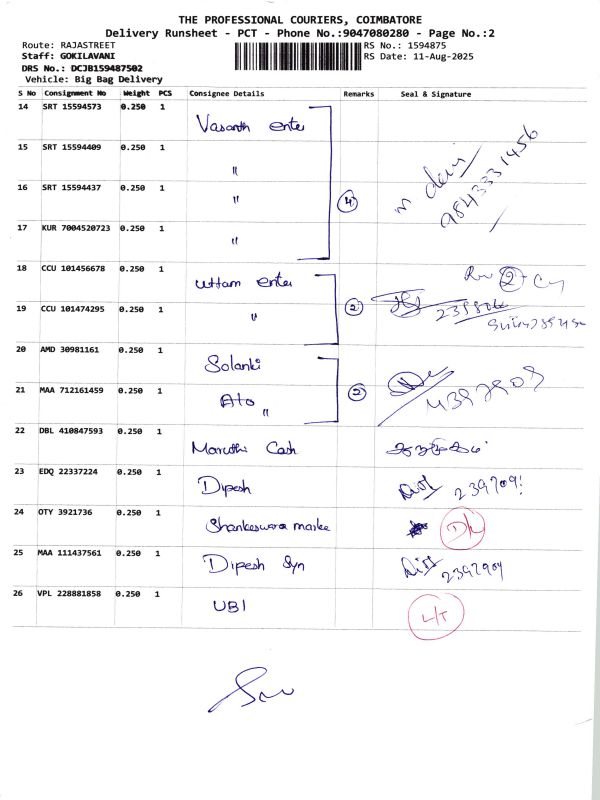 THE PROFESSIONAL COURIERS, COIMBATORE
Delivery Runsheet - PCT - Phone No.:9047080280 - Page No.:2
Route: RAJASTREET RS No.: 1594875
Staff: GOKILAVANI RS Date: 11-Aug-2025
DRS No.: DCJB159487502
Vehicle: Big Bag Delivery
S No Consignment No Weight PCS Consignee Details Remarks Seal & Signature
14 SRT 15594573 0.250 1 Vasanth enter
15 SRT 15594409 0.250 1 "
16 SRT 15594437 0.250 1 " 4 9843331456
17 KUR 7004520723 0.250 1 "
18 CCU 101456678 0.250 1 Uttam enter 2
19 CCU 101474295 0.250 1 " 2
20 AMD 30981161 0.250 1 Solanki
21 MAA 712161459 0.250 1 Ato " 2
22 DBL 410847593 0.250 1 Maruthi Cash
23 EDQ 22337224 0.250 1 Dipesh
24 OTY 3921736 0.250 1 Shankeswara
25 MAA 111437561 0.250 1 Dipesh Syn 2397909
26 VPL 228881858 0.250 1 UBI